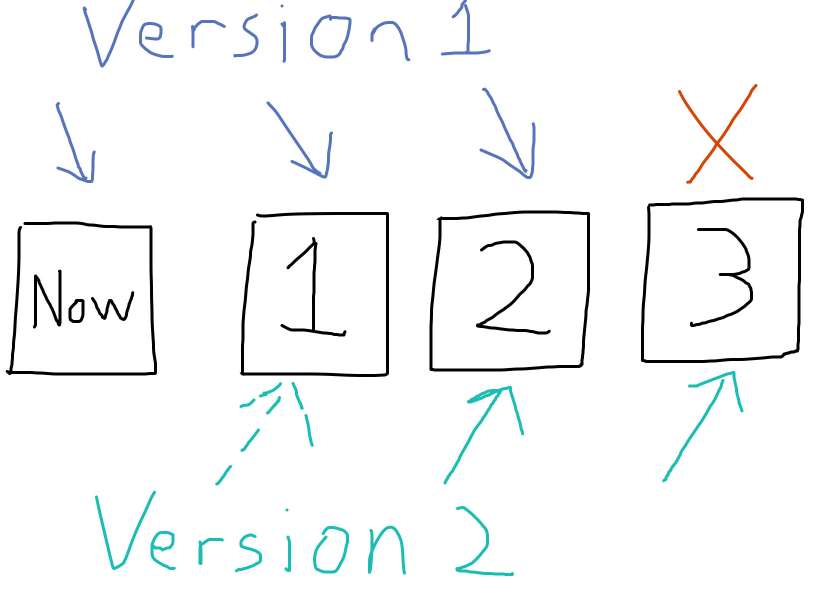 Version 1
Now 1 2 3
Version 2